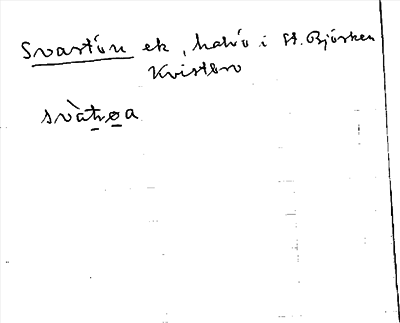 Svartön ek, halvö i St. Björken
Kvistbro
svàtrøa